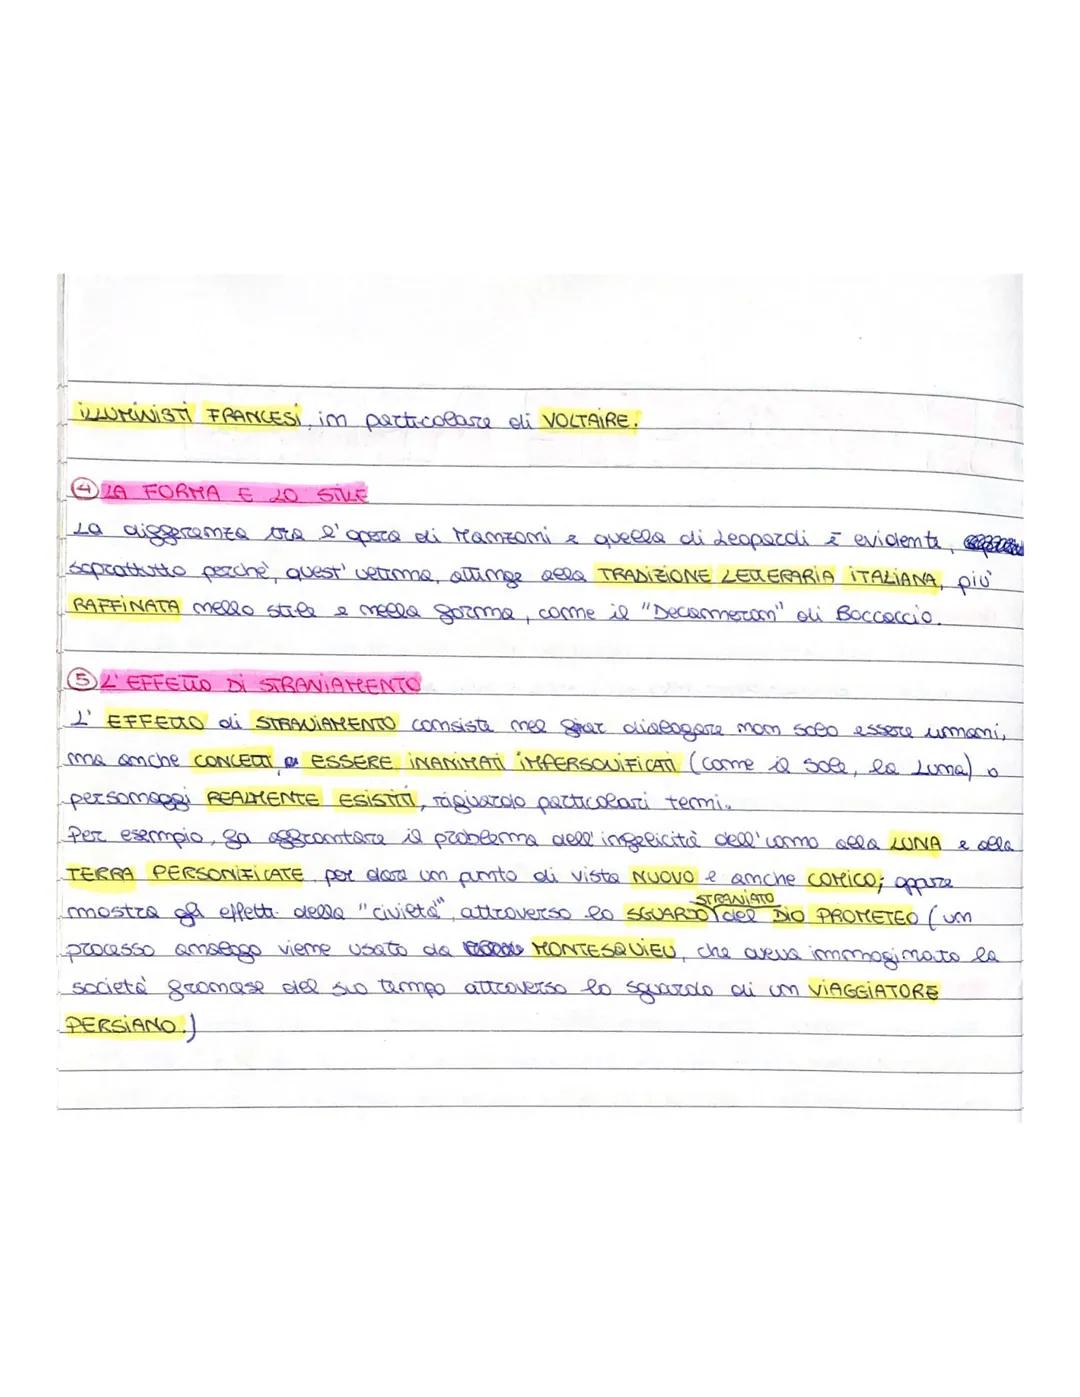 ILLUMINISTI FRANCESI, in particolare di VOLTAIRE.
4 LA FORMA E LO STILE
La differenza tra l'opera di Manzoni e quella di Leopardi è evidente,
soprattutto perchè, quest'ultima, attinge alla TRADIZIONE LETTERARIA ITALIANA, più
RAFFINATA nello stile e nella forma, come il "Decameron" di Boccaccio.
5 L'EFFETTO DI STRANIAMENTO
L'EFFETTO di STRANIAMENTO consiste nel far dialogare non solo essere umani,
ma anche CONCETTI o ESSERE INANIMATI IMPERSONIFICATI (come il Sole, la Luna) o
personaggi REALMENTE ESISTITI, riguardo particolari temi.
Per esempio, fa affrontare il problema dell'infelicità dell'uomo alla LUNA e alla
TERRA PERSONIFICATE per dare un punto di vista NUOVO e anche COMICO; oppure
STRANIATO
mostra gli effetti della "civiltà", attraverso lo SGUARDO del DIO PROMETEO (un
processo analogo viene usato da MONTESQUIEU, che aveva immaginato la
società francese del suo tempo attraverso lo sguardo di un VIAGGIATORE
PERSIANO.)